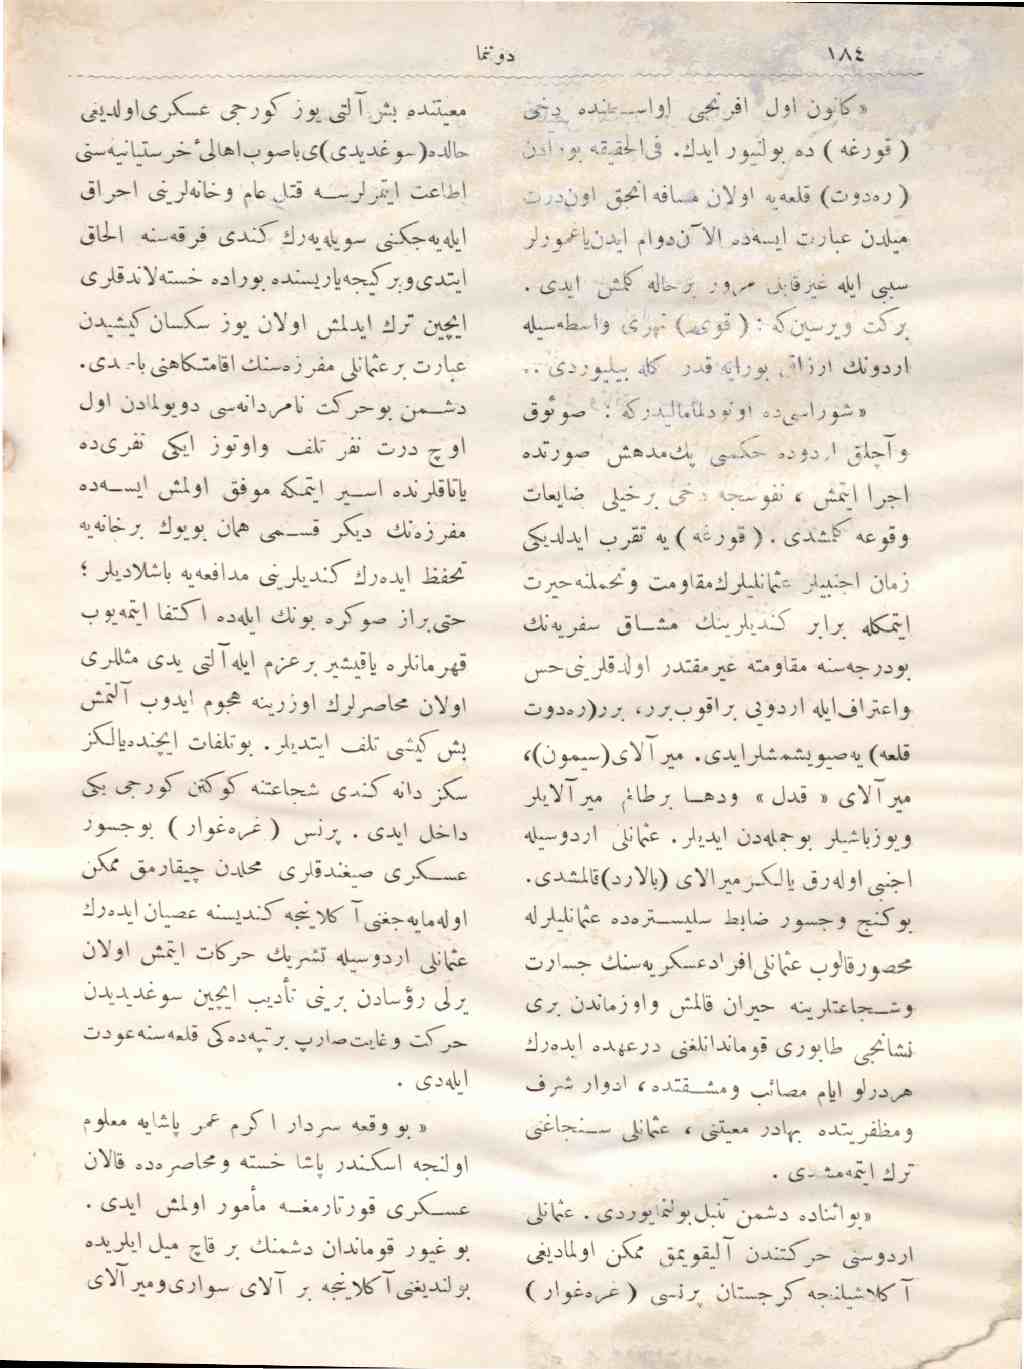 ١٨٤
دوننما
«كانون اول افرنجی اواسطنده دخی
(قورغه) ده بولنیور ایدك. فی‌الحقیقه بورادن
(ره‌دوت) قلعه‌یه اولان مسافه آنجق اون‌درت
میلدن عبارت ایسه‌ده الآن دوام ایدن یاغمورلر
سببی ایله غیرقابل مرور برحاله كلمش ایدی.
بركت ویرسین‌كه : ( قوی) نهری واسطه‌سیله
اردونك ارزاقی بورایه قدر كله بیلیوردی ..
«شوراسی‌ده اونودلماملیدركه : صوئوق
وآچلق اردوده حكمنی پك‌مدهش صورتده
اجرا ایتمش ، نفوسجه دخی برخیلی ضایعات
وقوعه كلمشدی. ( قورغه ) یه تقرب ایدلدیكی
زمان اجنبیلر عثمانلیلرك‌مقاومت وتحملنه‌حیرت
ایتمكله برابر كندیلرینك مشاق سفریه‌نك
بودرجه‌سنه مقاومته غیرمقتدر اولدقلرینی‌حس
واعتراف‌ایله اردویی براقوب‌برر، برر(ره‌دوت
قلعه) یه‌صیویشمشلرایدی. میرآلای(سیمون)،
میرآلای « قدل » ودها برطاقم میرآلایلر
ویوزباشیلر بوجمله‌دن ایدیلر. عثمانلی اردوسیله
اجنبی اوله‌رق یالكز میرالای (بالارد)قالمشدی.
بوكنج وجسور ضابط سلیستره‌ده عثمانلیلرله
محصورقالوب عثمانلی‌افرادعسكریه‌سنك جسارت
وشجاعتلرینه حیران قالمش واوزماندن بری
نشانجی طابوری قوماندانلغنی درعهده ایده‌رك
هردرلو ایام مصائب ومشقتده، ادوار شرف
ومظفریتده بهادر معیتنی ، عثمانلی سنجاغنی
ترك ایتمه‌مشدی .
«بواثناده دشمن تنبل‌بولنمایوردی. عثمانلی
اردوسنی حركتندن آلیقویمق ممكن اولمادیغی
آكلاشیلنجه كرجستان پرنسی ( غره‌غوار )
معیتنده بش‌آلتی یوز كورجی عسكری‌اولدیغی
حالده(سوغدیدی)ی‌باصوب‌اهالیٔ خرستیانیه‌سنی
اطاعت ایتمزلرسه قتل‌عام وخانه‌لرینی احراق
ایله‌یه‌جكنی سویلیه‌یه‌رك كندی فرقه‌سنه الحاق
ایتدی‌وبركیجه‌یاریسنده بوراده خسته‌لاندقلری
ایچین ترك ایدلمش اولان یوز سكسان كیشیدن
عبارت برعثمانلی مفرزه‌سنك اقامتكاهنی باصدی.
دشمن بوحركت نامردانه‌سی دویولمادن اول
اوچ درت نفر تلف واوتوز ایكی نفری‌ده
یاتاقلرنده اسیر ایتمكه موفق اولمش ایسه‌ده
مفرزه‌نك دیكر قسمی همان بویوك برخانه‌یه
تحفظ ایده‌رك كندیلرینی مدافعه‌یه باشلادیلر ؛
حتی‌براز صوكره بونك ایله‌ده اكتفا ایتمه‌یوب
قهرمانلره یاقیشیر برعزم ایله‌آلتی یدی مثللری
اولان محاصرلرك اوزرینه هجوم ایدوب آلتمش
بش‌كیشی تلف ایتدیلر. بوتلفات ایچنده‌یالكز
سكز دانه كندی شجاعتنه كوكنن كورجی بكی
داخل ایدی. پرنس ( غره‌غوار ) بوجسور
عسكری صیغندقلری محلدن چیقارمق ممكن
اوله‌مایه‌جغنی آكلاینجه كندیسنه عصیان ایده‌رك
عثمانلی اردوسیله تشریك حركات ایتمش اولان
یرلی رؤسادن برینی تأدیب ایچین سوغدیدیدن
حركت وغایت‌صارپ برتپه‌ده‌كی قلعه‌سنه‌عودت
ایله‌دی .
« بووقعه سردار اكرم عمر پاشایه معلوم
اولنجه اسكندر پاشا خسته ومحاصره‌ده قالان
عسكری قورتارمغه مأمور اولمش ایدی.
بوغیور قوماندان دشمنك برقاچ میل ایلریده
بولندیغنی آكلاینجه بر آلای سواری‌ومیرآلای